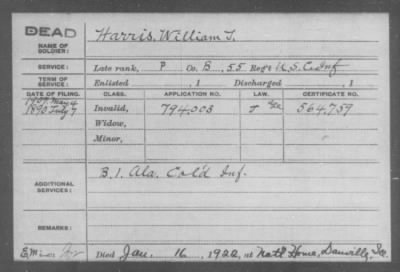 DEAD
NAME OF SOLDIER: Harris, William T.
SERVICE: Late rank, P Co. B, 55 Reg't U.S.C. Inf
TERM OF SERVICE: Enlisted , 1 Discharged , 1
DATE OF FILING. CLASS. APPLICATION NO. LAW. CERTIFICATE NO.
1907 May 4
1890 July 7 Invalid, 794,003 564,759
Widow,
Minor,
ADDITIONAL SERVICES: B. 1, Ala. Col'd Inf.
REMARKS:
Died Jan. 16, 1922, at Nat'l Home, Danville, Ill.